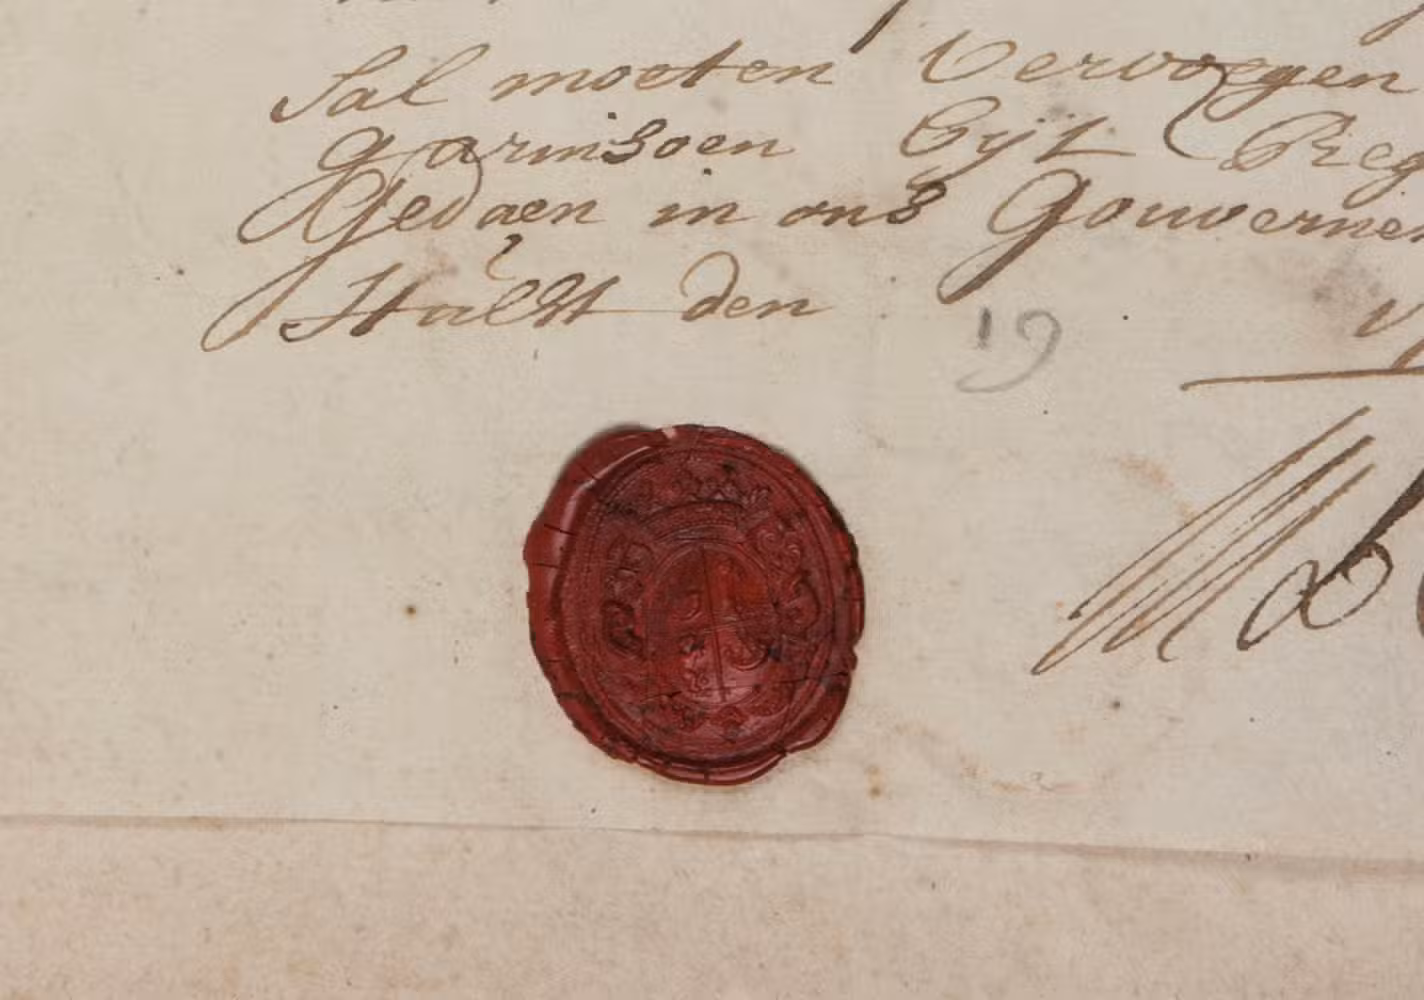 Sal moeten Vervoegen
garinsoen bijt Reg
Gedaen in ons Gouverne
den
19